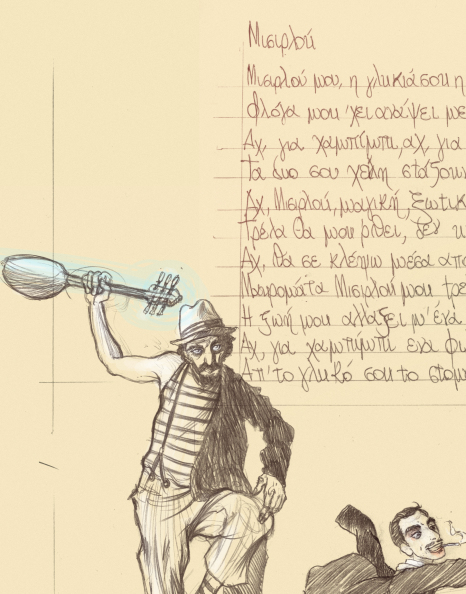 Μισιρλού
Μισιρλού μου, η γλυκιά σου η
Φλόγα μου 'χει ανάψει με
Αχ, για χαμπίμπι, αχ, για
Τα δυο σου χείλη στάζουν
Αχ, Μισιρλού, μαγική, ξωτικ
Τρέλα θα μου ρθει, δεν υ
Αχ, θα σε κλέψω μέσα απο
Μαυρομάτα Μισιρλού μου τρε
Η ζωή μου αλλάξει μ' ένα
Αχ, για χαμπιμπι ενα φι
Απ' το γλυκό σου το στομ